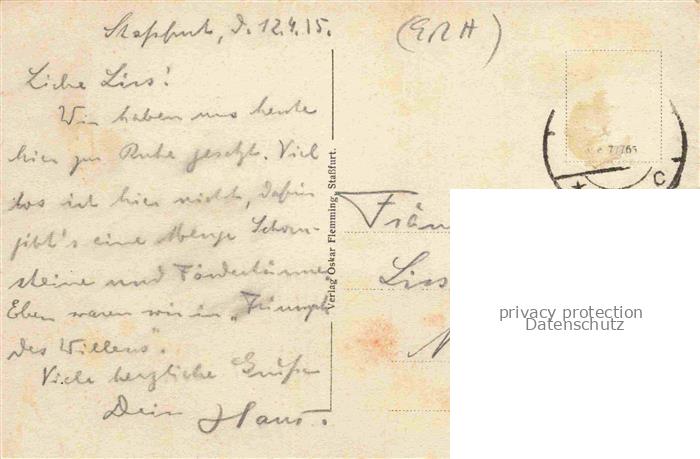 Staßfurt, d. 12.4.15.
(ERH)
Liebe Liss!
Wir haben uns heute
hier zur Ruhe gesetzt. Viel
los ist hier nicht, dafür
gibt's eine Menge Schorn-
steine und Fördertürme
Eben waren wir in „Triumph
des Willens“.
Viele herzliche Grüße
Dein Hans.
Verlag Oskar Flemming, Staßfurt.
77765
C
Fräu
Liss
privacy protection
Datenschutz